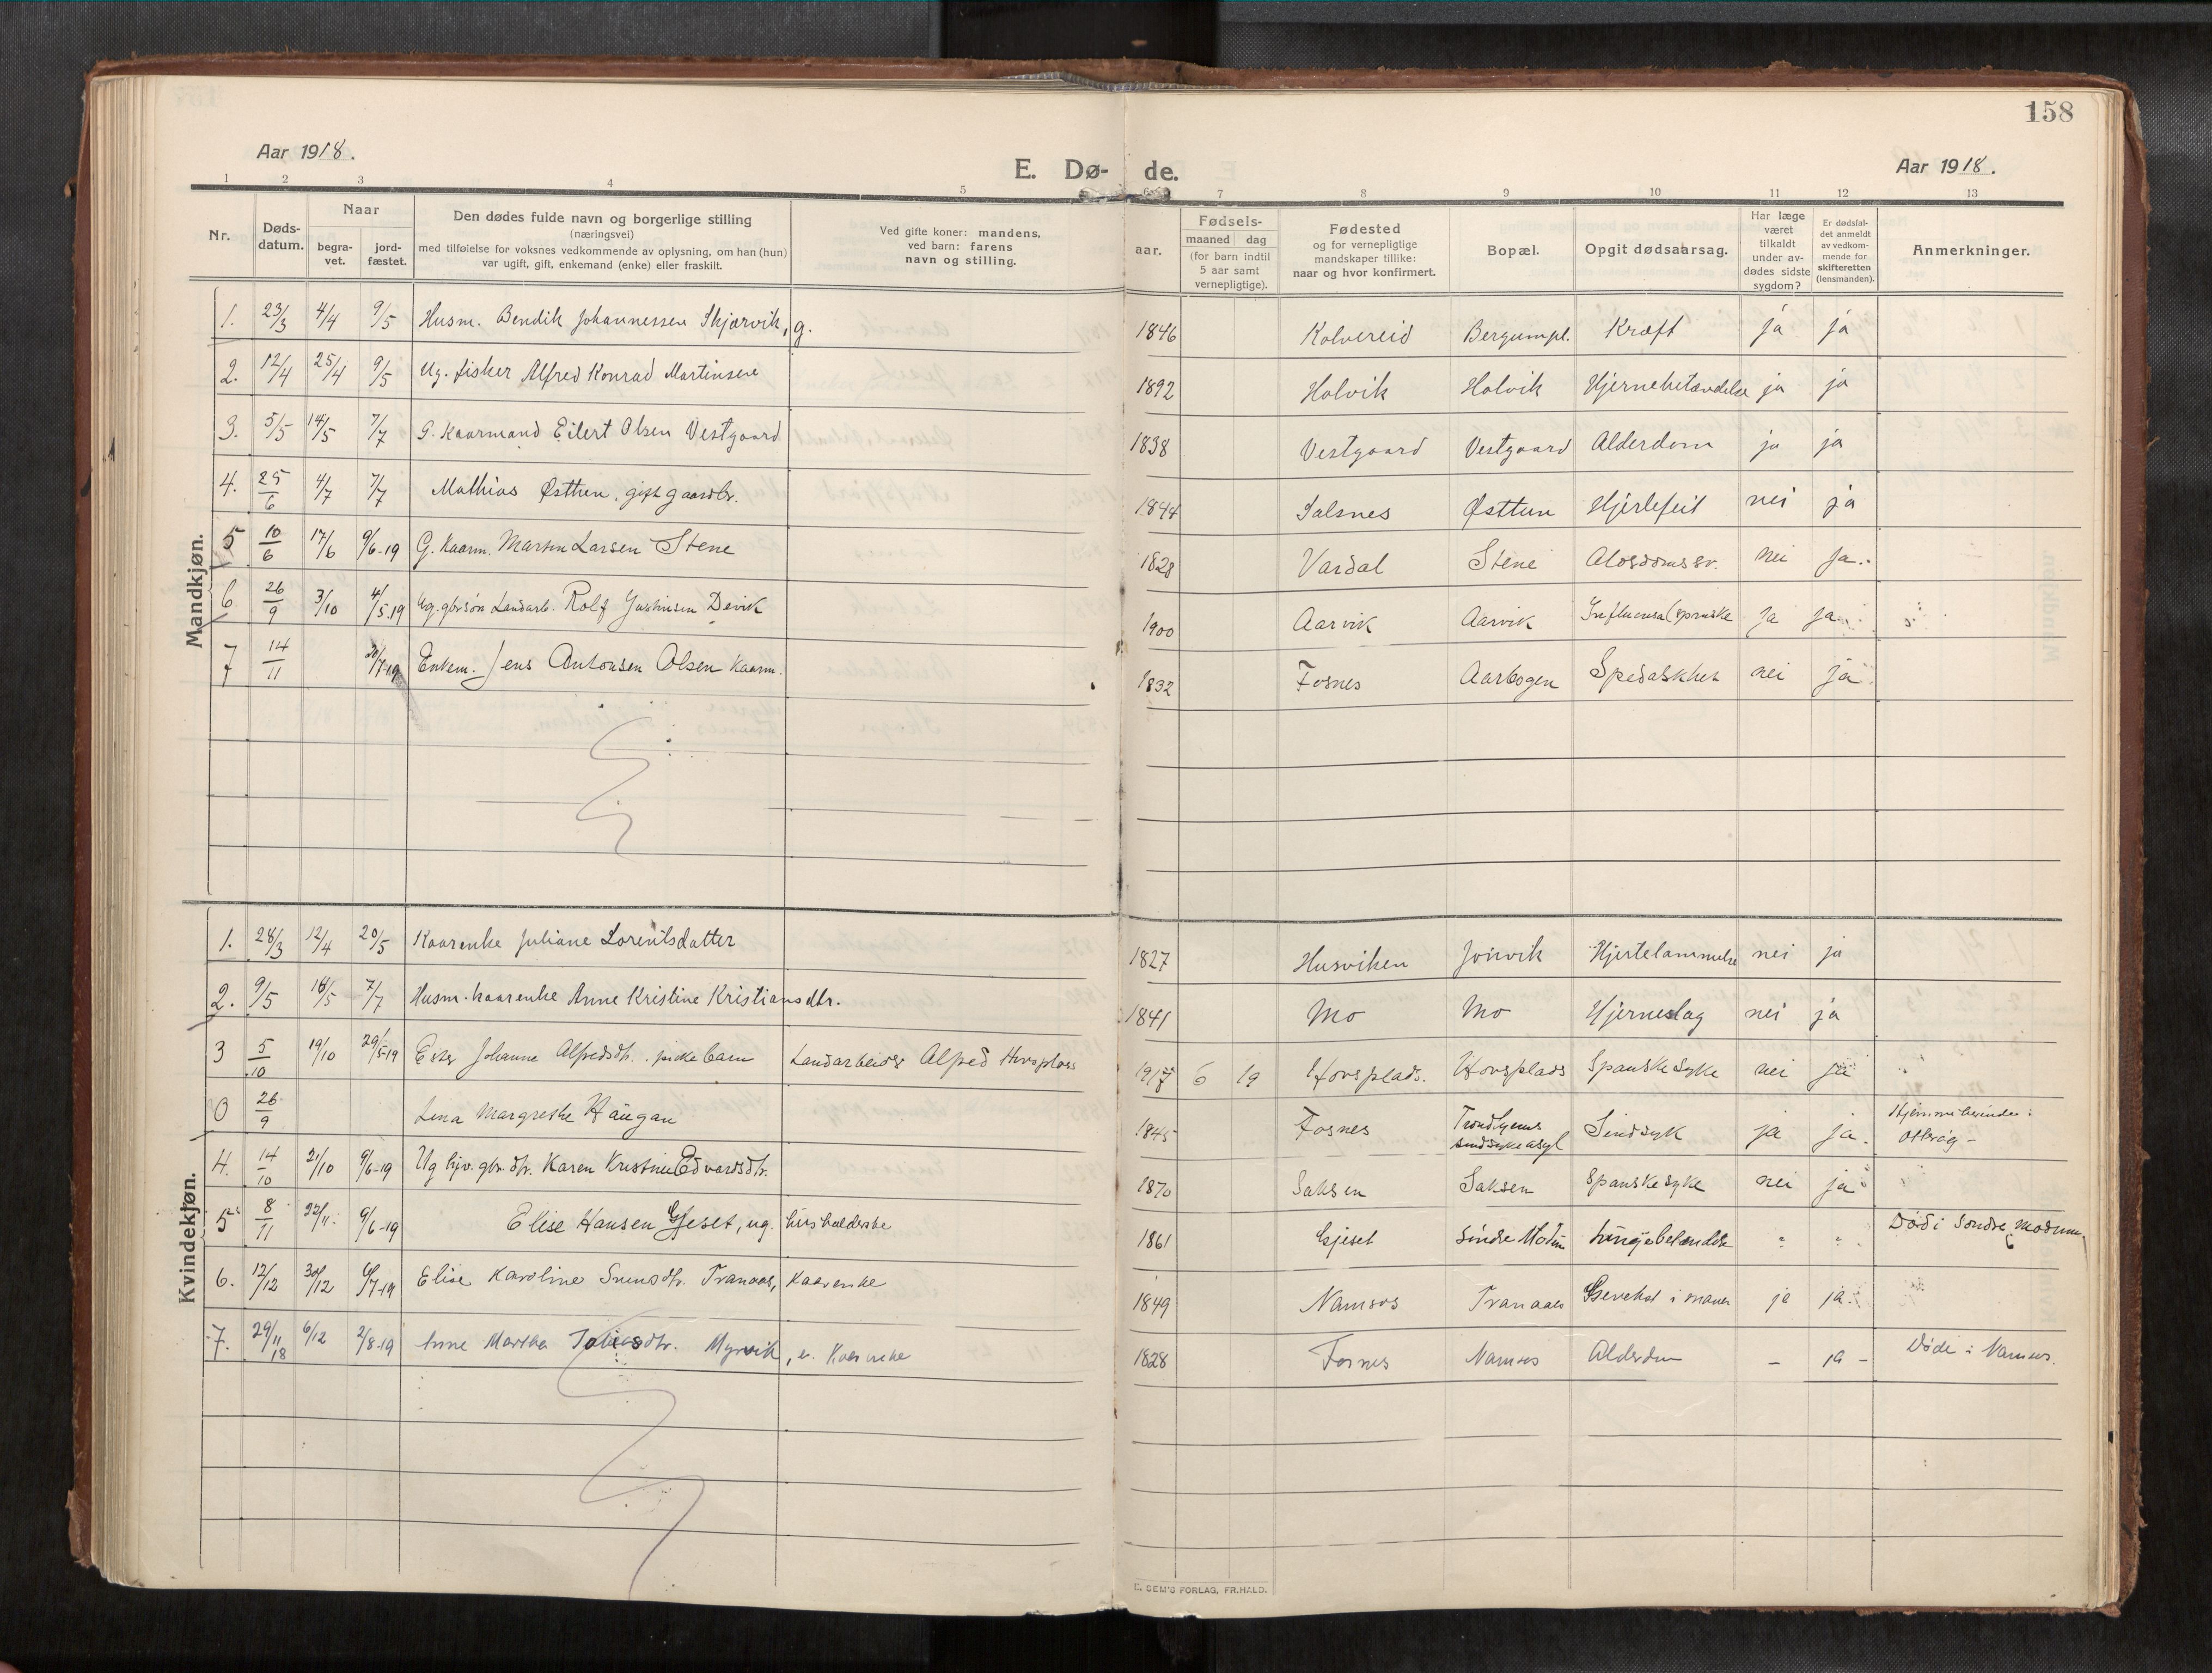 158
Aar 1918.
E. Dø- de.
Aar 1918.
1 2 3 4 5 6 7 8 9 10 11 12 13
Nr.
Døds-
datum.
Naar
begra-
vet.
jord-
fæstet.
Den dødes fulde navn og borgerlige stilling
(næringsvei)
med tilføielse for voksnes vedkommende av oplysning, om han (hun)
var ugift, gift, enkemand (enke) eller fraskilt.
Ved gifte koner: mandens,
ved barn: farens
navn og stilling.
aar.
Fødsels-
maaned dag
(for barn indtil
5 aar samt
vernepligtige).
Fødested
og for vernepligtige
mandskaper tillike:
naar og hvor konfirmert.
Bopæl.
Opgit dødsaarsag.
Har læge
været
tilkaldt
under av-
dødes sidste
sygdom?
Er dødsfal-
det anmeldt
av vedkom-
mende for
skifteretten
(lensmanden).
Anmerkninger.
Mandkjøn.
1. 23/3 4/4 9/5 Husm. Bendik Johannessen Skjærvik, g. 1846 Kolvereid Bergumpl. Kræft ja ja
2. 12/4 25/4 9/5 Ug. fisker Alfred Konrad Martinsen 1892 Holvik Holvik Hjernebetændelse ja ja
3. 5/5 14/5 7/7 G. Kaarmand Eilert Olsen Vestgaard 1838 Vestgaard Vestgaard Alderdom ja ja
4. 25/6 4/7 7/7 Mathias Østtun, gift gaardbr. 1844 Salsnes Østtun Hjertefeil nei ja
5 10/6 17/6 9/6-19 G. Kaarm. Martin Larsen Stene 1828 Vardal Stene nei ja.
6 26/9 3/10 4/5.19 Ug. gbrsøn Landarb. Rolf Devik 1900 Aarvik Aarvik Influensa (spanske ja ja
7 14/11 /7-19 Enkem. Jens Antonsen Olsen Kaarm. 1832 Fosnes Aarbogen Spedalskhet nei ja
Kvindekjøn.
1. 28/3 12/4 20/5 Kaarenke Juliane Lorentsdatter 1827 Husviken Jønvik Hjertelammelse nei ja
2. 9/5 18/5 7/7 Husm.kaarenke Anne Kristine Kristiansdtr. 1841 Mo Mo Hjerneslag nei ja
3 5/10 19/10 29/5-19 Ester Johanne Alfredsdtr. pikebarn Landarbeider Alfred Hovsplass 1917 6 19 Hovsplads. Hovsplads Spanskesyke nei ja
0 26/9 Lina Margrethe Haugan 1845 Fosnes Trondhjems
sindsykeasyl Sindsyk ja ja. Hjemmehørende i
Otterøy -
4. 14/10 21/10 9/6-19 Ug. gbr.dtr. Karen Kristine Edvardsdtr. 1870 Saksen Saksen Spanskesyke nei ja
5 8/11 22/11. 9/6-19 Elise Hansen Gjeset, ug. husholderske 1861 Gjeset Søndre Modum Lungebetændelse " " Død i Søndre Modum
6. 12/12 30/12 6/7-19 Elise Karoline Svensdtr. Tranaas, Kaarenke 1849 Namsos Tranaas i maven ja ja
7. 29/11 18 6/12 2/8-19 Anne Martha Myrvik, e. Kaarenke 1828 Fosnes Namsos Alderdom - ja - Døde i Namsos.
E. SEM'S FORLAG, FR.HALD.